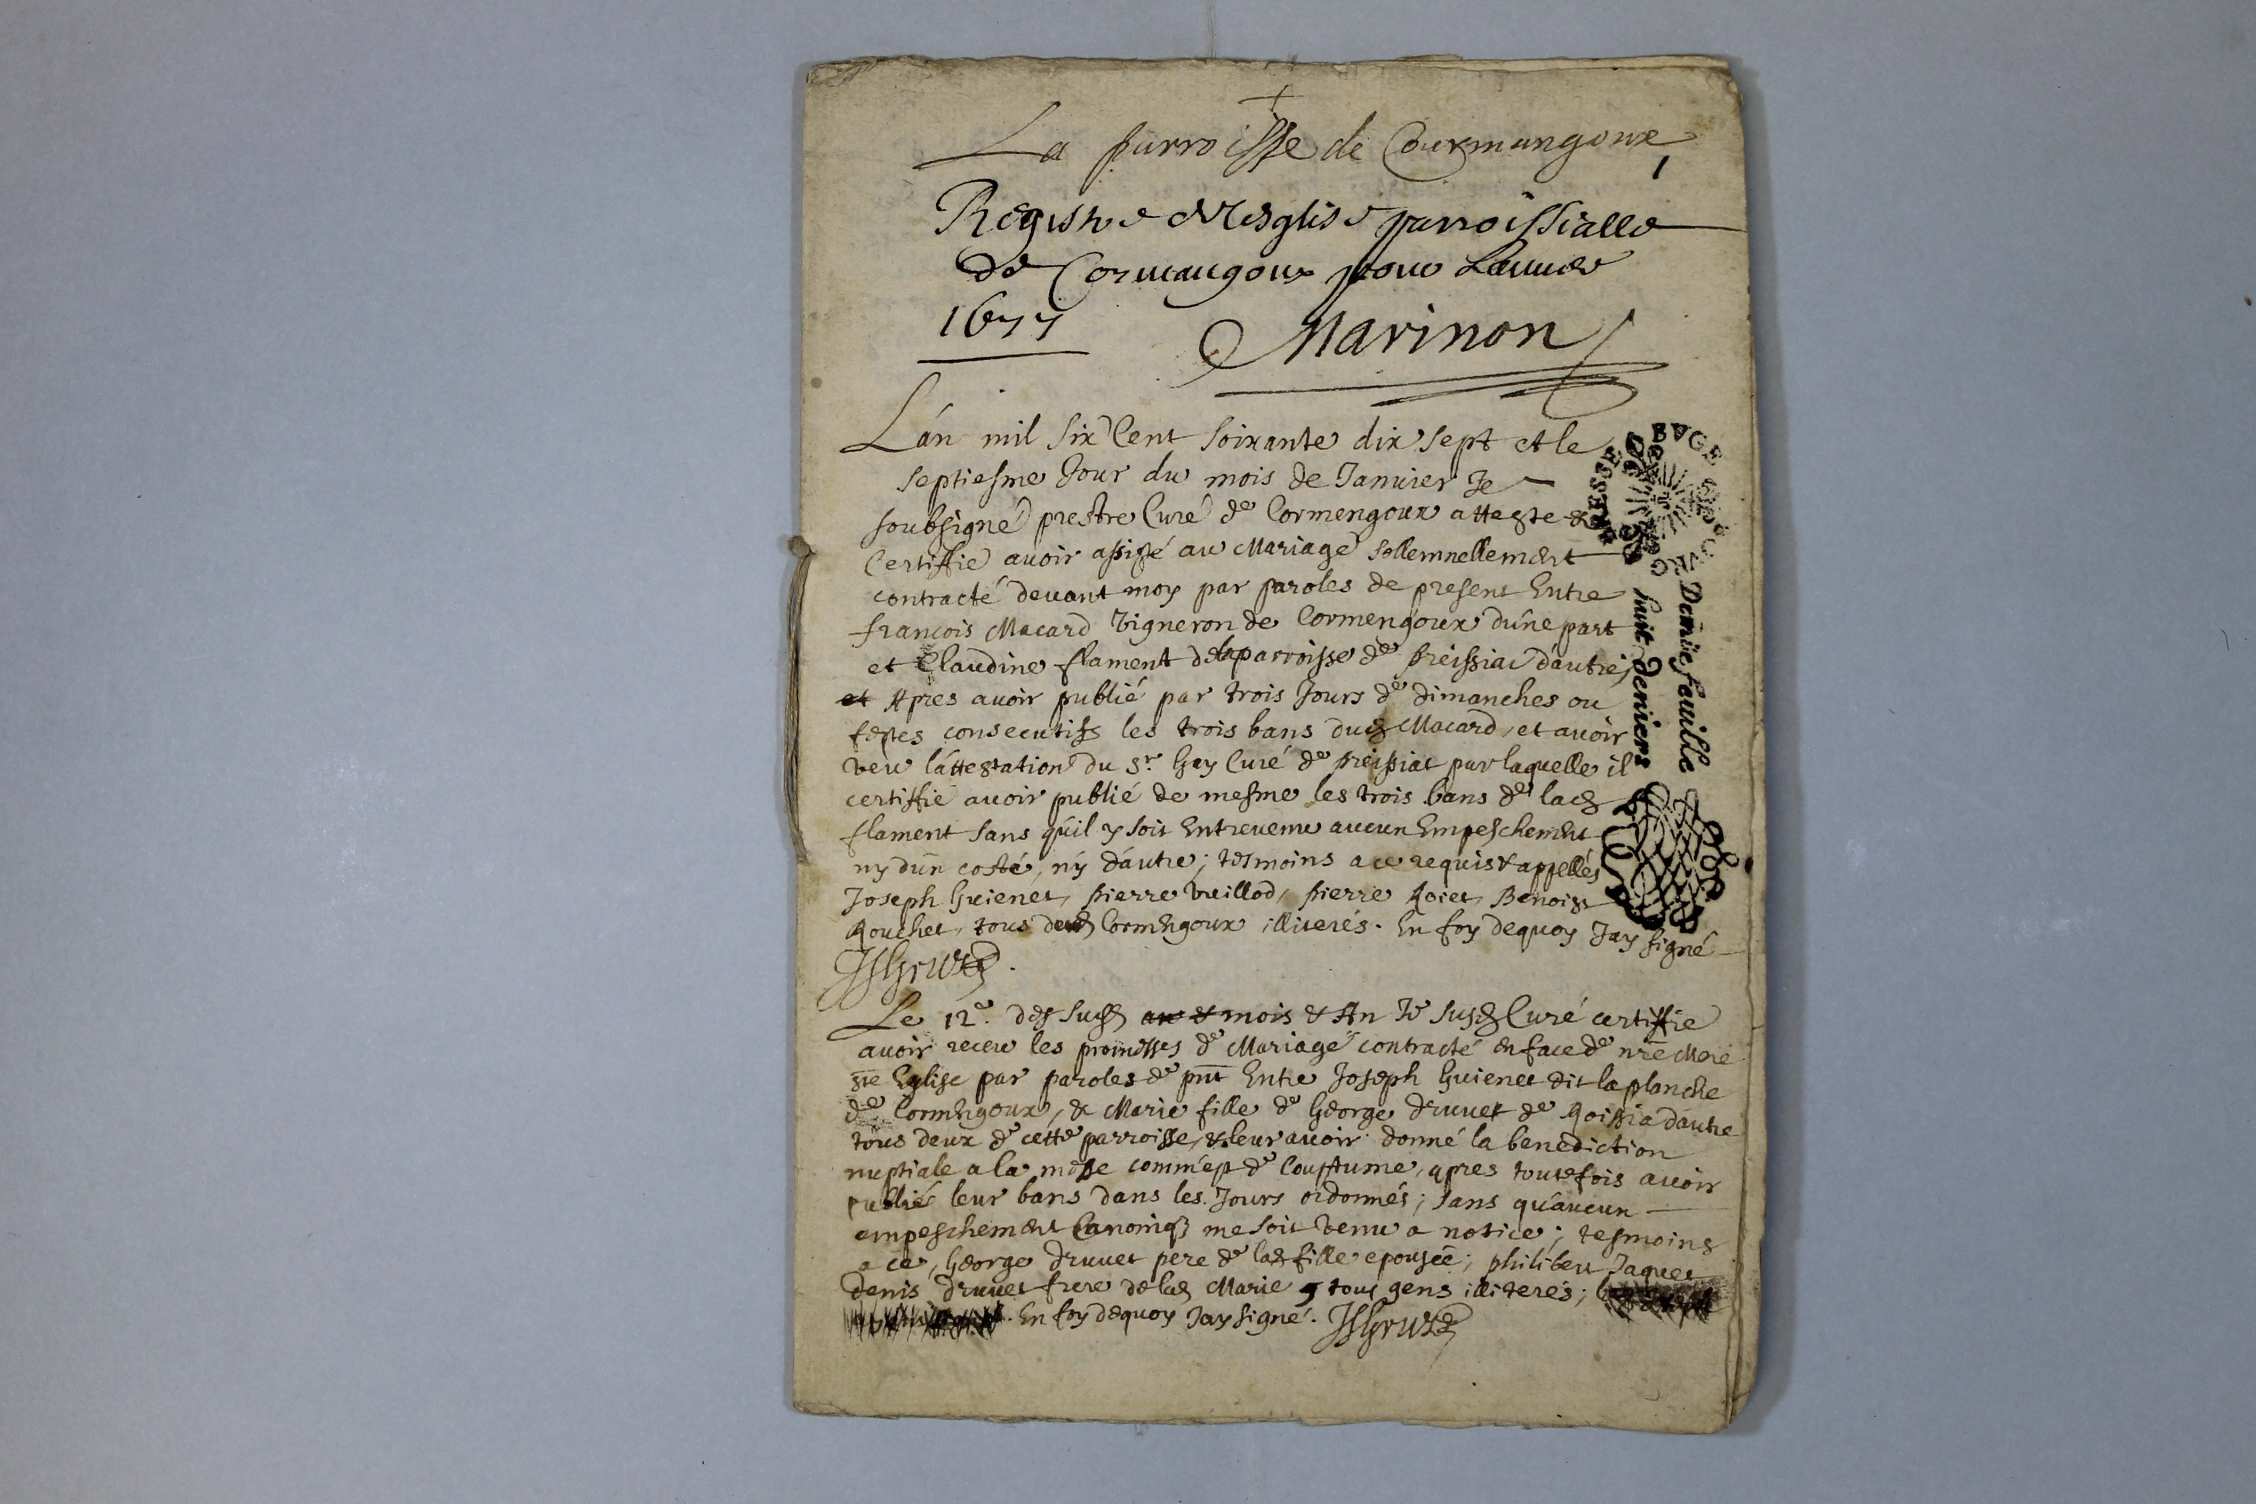 La parroisse de Courmangoux
1
Registre de Lesglise parroissialle
de Cormangoux pour Lannee
1677 Marinon
Lán mil six Cent soixante dix sept et le
septiesme Jour du mois de Januier Je
soubsigné prestre Curé de Cormengoux atteste &
Certiffie auoir assisté au Mariage sollemnellement
contracté deuant moy par paroles de present Entre
françois Macard Vigneron de Cormengoux dúne part
et Claudine flament de la parroisse de preissiac dáutre,
et Apres auoir publié par trois Jours de dimanches ou
festes consecutifs les trois bans dud Macard, et auoir
veu láttestation du Sr Gay Curé de preissiat par laquelle il
certiffie auoir publié de mesme les trois bans de lad
flament sans qúil y soit Entreuenu aucun Empeschement
ny dún costé, ny dáutre; tesmoins a ce requis & appellés
Joseph Guienet, pierre vuillod, pierre Roiet, Benoist
Rouchet, tous dud Cormengoux illiterés. En foy dequoy Jay signé
Le 12e. des susd mois & An Je susd Curé certiffie
auoir receu les promesses de Mariage contracté en face de nre Mere
ste Eglise par paroles de pnt Entre Joseph Guienet dit la planche
de Cormengoux, & Marie fille de George druuet de Roissia dáutre
tous deux de cétte parroisse, & leur auoir donné la benediction
nuptiale a la messe comm'est de Couftume, apres toutefois auoir
publié leur bans dans les Jours ordonnés; sans qúaucun
empeschement Canoniq me soit venu a notice; tesmoins
a ce, George druuet pere de lad fille epousée; philibert Jaquet
denis druuet frere de lad Marie tous gens illiterés;
En foy dequoy Jay signé.
BVGE
BRESSE
Demie feuille
huit deniers